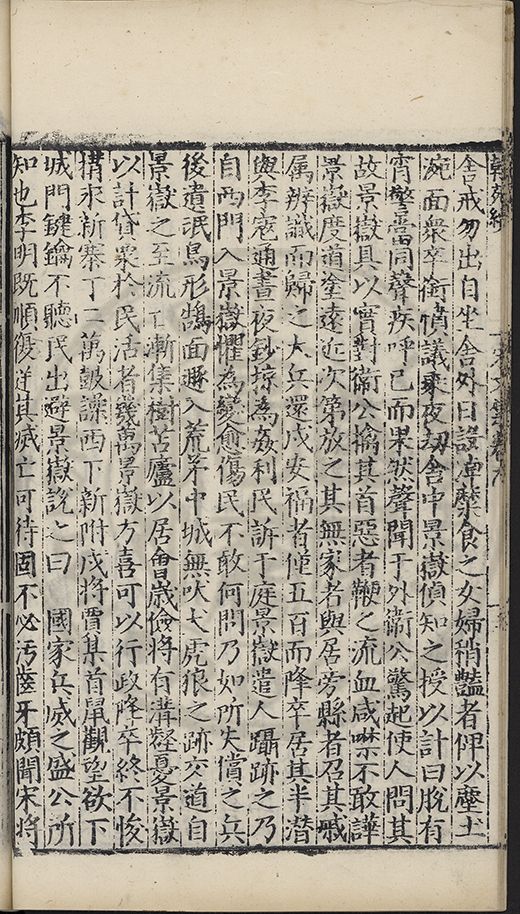 舍戒勿出自坐舍外日設淖糜食之女婦稍豔者俾以塵土
涴面衆卒銜憤議乘夜刼舍中景嶽偵知之授以計曰脫有
宵警當同聲疾呼已而果然聲聞于外衛公驚起使人問其
故景嶽具以實對衛公擒其首惡者鞭之流血咸噤不敢譁
景嶽度道塗遠近次第放之其無家者與居旁縣者召其戚
属辨識而歸之大兵還戍安福者僅五百而降卒居其半潜
與李寇通晝夜鈔掠為姦利民訴于庭景嶽遣人躡跡之乃
自西門入景嶽懼為變愈傷民不敢何問乃如所失償之兵
後遺氓鳥形鵠面遯入荒茅中城無吠犬虎狼之跡交道自
景嶽之至流亡漸集樹苫廬以居會歲儉將有溝壑憂景嶽
以計貸粟於民活者幾萬景嶽方喜可以行政降卒終不悛
搆永新寨丁二萬鼓譟西下新附戍將賈某首鼠觀望欲下
城門鍵鑰不聽民出避景嶽說之曰　國家兵威之盛公所
知也李明既順復逆其滅亡可待固不必汚齒牙頗聞宋將